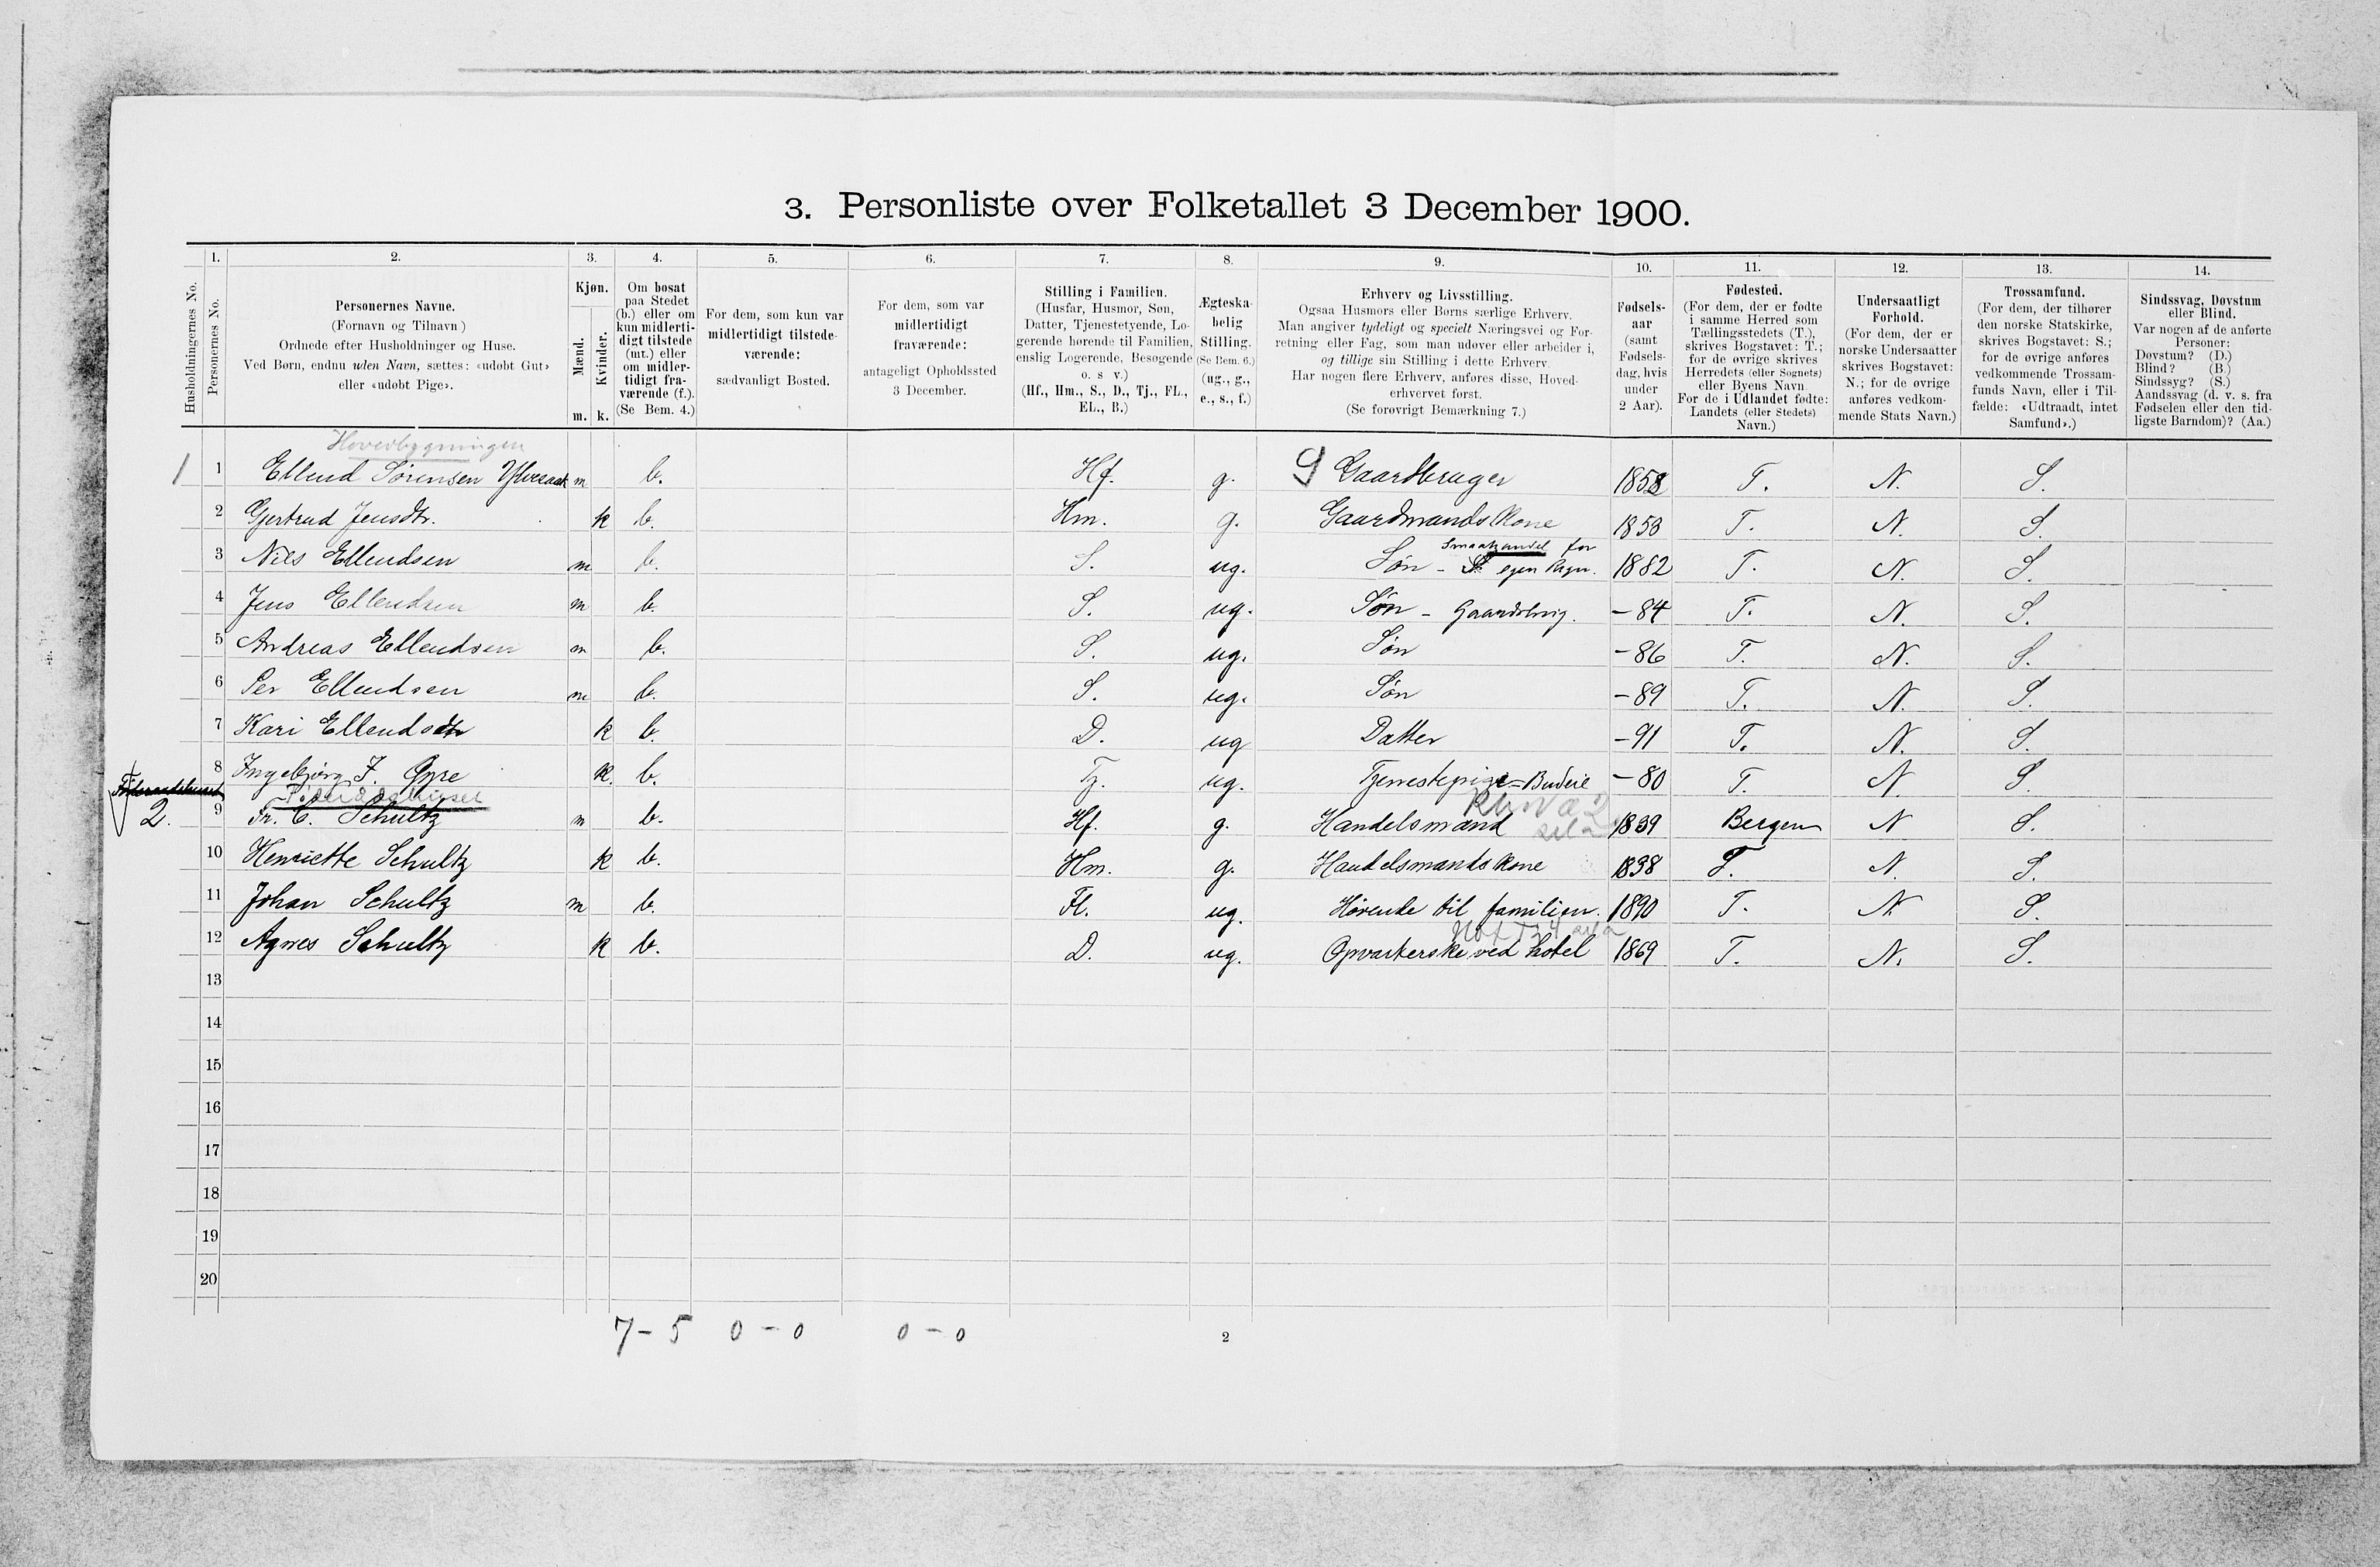 3. Personliste over Folketallet 3 December 1900.
Husholdningernes No.
1.
Personernes No.
2.
Personernes Navne.
(Fornavn og Tilnavn)
Ordnede efter Husholdninger og Huse.
Ved Børn, endnu uden Navn, sættes: «udøbt Gut»
eller «udøbt Pige».
3.
Kjøn.
Mænd.
m.
Kvinder.
k.
4.
Om bosat
paa Stedet
(b.) eller om
kun midlerti-
digt tilstede
(mt.) eller
om midler-
tidigt fra-
værende (f.).
(Se Bem. 4.)
5.
For dem, som kun var
midlertidigt tilstede-
værende:
sædvanligt Bosted.
6.
For dem, som var
midlertidigt
fraværende:
antageligt Opholdssted
3 December.
7.
Stilling i Familien.
(Husfar, Husmor, Søn,
Datter, Tjenestetyende, Lo-
gerende hørende til Familien,
enslig Logerende, Besøgende
o. s. v.)
(Hf., Hm., S., D., Tj., FL.,
EL., B.)
8.
Ægteska-
belig
Stilling.
(Se Bem. 6.)
(ug., g.,
e., s., f.)
9.
Erhverv og Livsstilling.
Ogsaa Husmors eller Børns særlige Erhverv.
Man angiver tydeligt og specielt Næringsvei og For-
retning eller Fag, som man udøver eller arbeider i,
og tillige sin Stilling i dette Erhverv.
Har nogen flere Erhverv, anføres disse, Hoved-
erhvervet først.
(Se forøvrigt Bemærkning 7.)
10.
Fødsels-
aar
(samt
Fødsels-
dag, hvis
under
2 Aar).
11.
Fødested.
(For dem, der er fødte
i samme Herred som
Tællingsstedets (T.),
skrives Bogstavet: T.;
for de øvrige skrives
Herredets (eller Sognets)
eller Byens Navn.
For de i Udlandet fødte:
Landets (eller Stedets)
Navn.)
12.
Undersaatligt
Forhold.
(For dem, der er
norske Undersaatter
skrives Bogstavet:
N.; for de øvrige
anføres vedkom-
mende Stats Navn.)
13.
Trossamfund.
(For dem, der tilhører
den norske Statskirke,
skrives Bogstavet: S.;
for de øvrige anføres
vedkommende Trossam-
funds Navn, eller i Til-
fælde: «Udtraadt, intet
Samfund».)
14.
Sindssvag, Døvstum
eller Blind.
Var nogen af de anførte
Personer:
Døvstum? (D.)
Blind? (B.)
Sindssyg? (S.)
Aandssvag (d. v. s. fra
Fødselen eller den tid-
ligste Barndom)? (Aa.)
Hovedbygningen
1 1 Ellend Sørensen Ylvesaak m b. Hf. g. 9 Gaardbruger 1858 T. N. S.
2 Gjertrud Jensdtr. k b. Hm. g. Gaardmands Kone 1853 T. N. S.
Smaahandel for
3 Nils Ellendsen m b. S. ug. Søn - egen Regn. 1882 T. N. S.
4 Jens Ellendsen m b. S. ug. Søn - Gaardsbrug. - 84 T. N. S.
5 Andreas Ellendsen m b. S. ug. Søn - 86 T. N. S.
6 Per Ellendsen m b. S. ug. Søn - 89 T. N. S.
7 Kari Ellendsdtr k b. D. ug Datter - 91 T. N. S.
8 Ingebjørg J. Opre k. b. Tj. ug. Tjenestepige = Budeie - 80 T. N S.
Føderaadshuset
Føderaadshuset
2. 9 Fr. C. Schultz m b. Hf. g. Handelsmand 1839 Bergen N S.
10 Henriette Schultz k b. Hm. g. Handelsmands Kone 1838 T. N. S.
11 Johan Schultz m b. Fl. ug. Hørende til familien. 1890 T. N S.
12 Agnes Schultz k b. D. ug. Opvarterske ved hotel 1869 T. N. S.
13
14
15
16
17
18
19
20
7 - 5 0 - 0 0 - 0
2